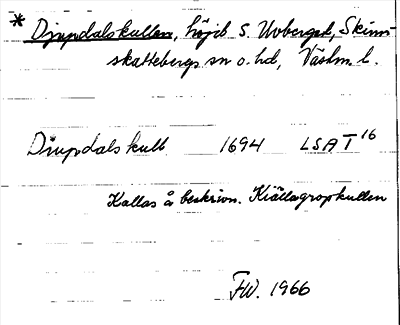 * Djupdalskullen, höjd S. Uvberget, Skinn-
skattebergs sn o. hd, Västm. l.
Diupdals kull 1694 LSA T 16
Kallas å beskrivn. Kiällagropkullen
FW. 1966